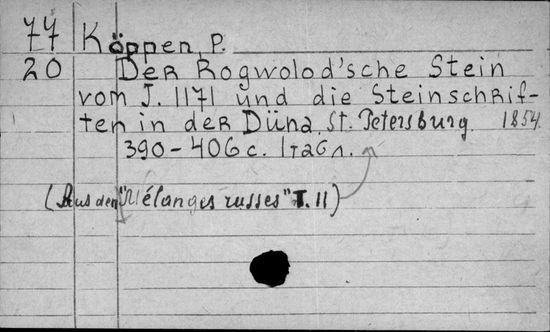 77 Köppen, P.
20 Der Rogwolod'sche Stein
vom J. 1171 und die Steinschrif-
ten in der Düna. St. Petersburg. 1854.
390-406 с. 1 табл.
(Aus den "Mélanges russes" T. II)